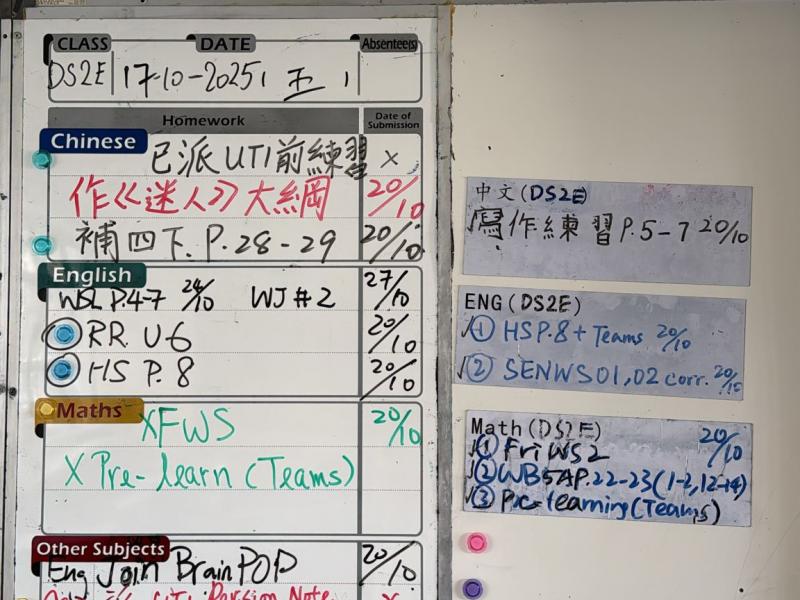 CLASS DATE Absentee(s)
DS2E 17-10-2025 五
Homework Date of Submission
Chinese
已派UT1前練習 ×
作《迷人》大綱 20/10
補四下. P. 28-29 20/10
English
WSL P.4-7 24/10 WJ#2 27/10
RR. U6 20/10
HS P. 8 20/10
Maths
XFWS 20/10
X Pre-learn (Teams)
Other Subjects
Eng Join BrainPOP 20/10
中文(DS2E)
√寫作練習P.5-7 20/10
ENG(DS2E)
√① HSP.8 + Teams 20/10
√② SENWS01,02 corr. 20/10
Math(DS2E) 20/10
√① Fri WS2
√② WB5A P.22-23(1-2,12-14)
√③ Pre-learning (Teams)